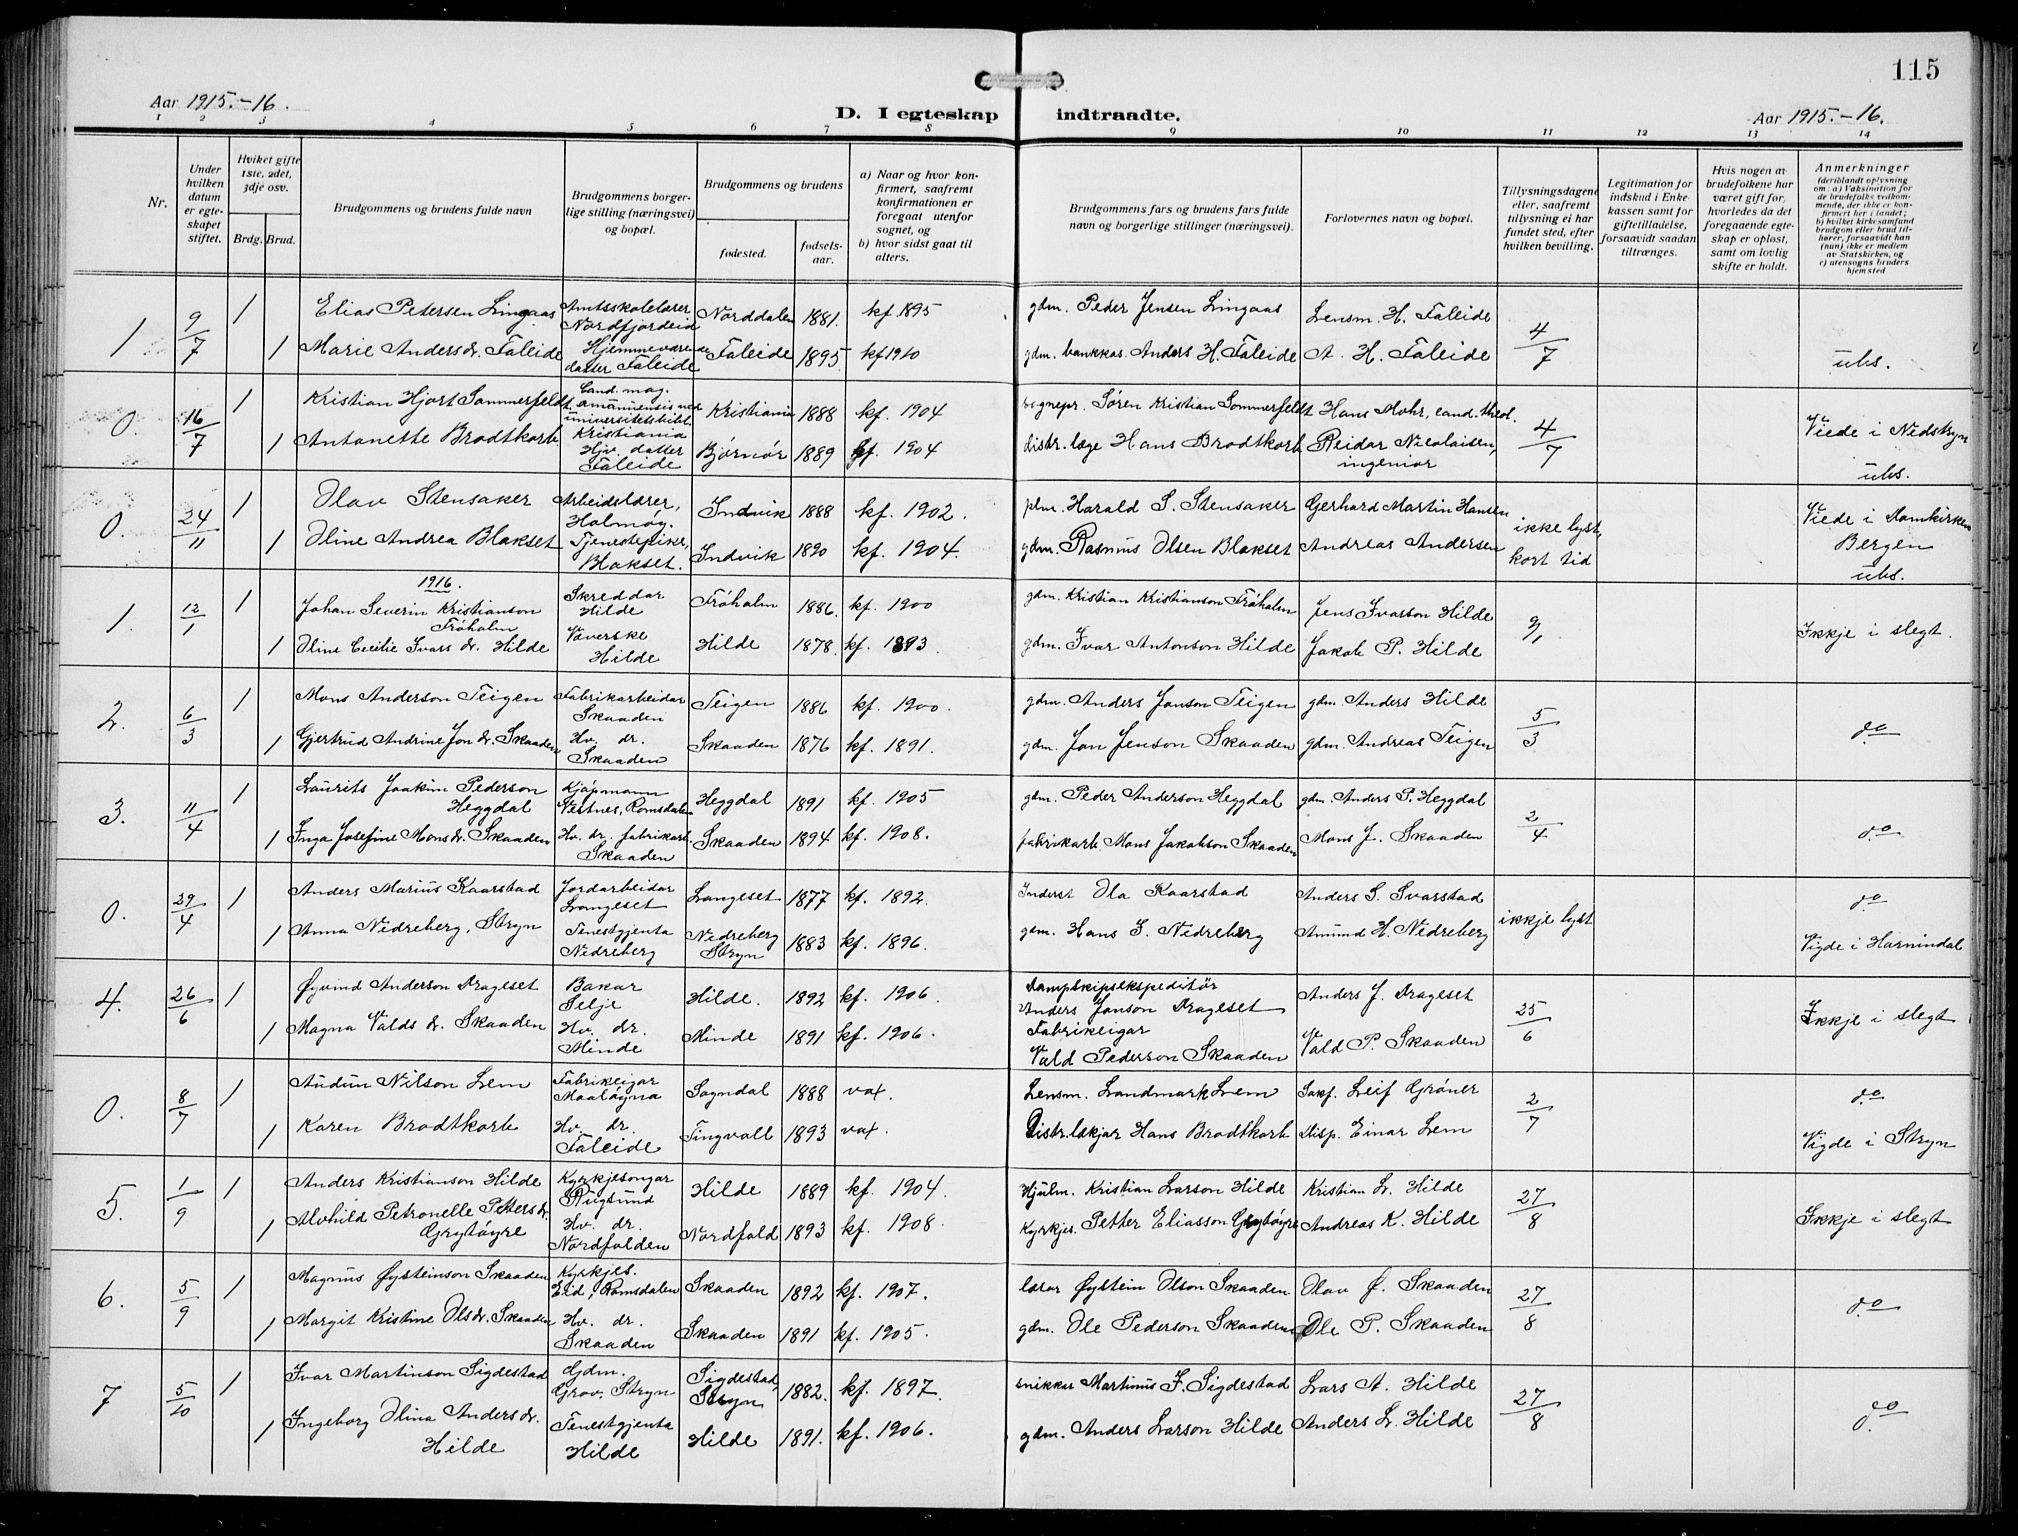 115
Aar 1915.-16.
D. I egteskap indtraadte.
Aar 1915.-16.
1 2 3 4 5 6 7 8 9 10 11 12 13 14
Nr.
Under hvilken datum er egteskapet stiftet.
Hviket gifte 1ste, 2det, 3dje osv.
Brdg. Brud.
Brudgommens og brudens fulde navn
Brudgommens borgerlige stilling (næringsvei) og bopæl.
Brudgommens og brudens
fødested.
fødselsaar.
a) Naar og hvor konfirmert, saafremt konfirmationen er foregaat utenfor sognet, og
b) hvor sidst gaat til alters.
Brudgommens fars og brudens fars fulde navn og borgerlige stillinger (næringsvei).
Forlovernes navn og bopæl.
Tillysningsdagene eller, saafremt tillysning ei har fundet sted, efter hvilken bevilling.
Legitimation for indskud i Enkekassen samt for giftetilladelse, forsaavidt saadan tiltrænges.
Hvis nogen av brudefolkene har været gift før, hvorledes da det foregaaende egteskap er opløst, samt om lovlig skifte er holdt.
Anmerkninger
(deriblandt oplysning om: a) Vaksination for de brudefolks vedkommende, der ikke er konfirmert her i landet; b) hvilket kirkesamfund brudgom eller brud tilhører, forsaavidt han (hun) ikke er medlem av Statskirken, og c) utensogns bruders hjemsted
1 9/7 1 Elias Petersen Lingaas Amtsskolelærer Nordfjordeid Norddalen 1881. kf. 1895 gdm. Peder Jensen Lingaas Lensm. H. Faleide 4/7
1 Marie Andersdr. Faleide Hjemmeværende datter Faleide Faleide 1895 kf 1910 gdm. bankkas. Anders H. Faleide A. H. Faleide ubs.
0. 16/7 1 Kristian Hjort Sommerfeldt Cand. mag. amanuensis ved universitetsbibl. Kristiania Kristiania 1888 kf. 1904 sognepr. Søren Kristian Sommerfeldt Hans Mohr, cand. theol. 4/7 Viede i Nedstryn
1 Antonette Brodtkorb Hjv. datter Faleide Bjørnør 1889 kf. 1904 distr. læge Hans Brodtkorb Reidar Nicolaisen, ingeniør ubs.
0. 24/11 1 Olav Stensaker Arbeidslærer, Holmøy. Indvik 1888 kf. 1902. plm. Harald S. Stensaker Gerhard Martin Hansen ikke lyst, kort tid Viede i Domkirken Bergen
1 Oline Andrea Blakset Tjenestepike, Blakset. Indvik 1890 kf. 1904. gdm. Rasmus Olsen Blakset Andreas Andersen ubs.
1916.
1. 12/1 1 Johan Severin Kristianson Frøholm Skreddar Hilde Frøholm 1886. kf. 1900 gdm. Kristian Kristianson Frøholm Jens Ivarson Hilde 9/1 Ikkje i slegt.
1 Oline Cecilie Ivars dr. Hilde Væverske Hilde Hilde 1878. kf. 1893. gdm. Ivar Antonson Hilde Jakob P. Hilde
2. 6/3 1 Mons Anderson Teigen Fabrikarbeidar Skaaden Teigen 1886 kf. 1900. gdm. Anders Jonson Teigen gdm. Anders Hilde 5/3 do
1 Gjertrud Andrine Jon dr. Skaaden Hv. dr. Skaaden Skaaden 1876 kf. 1891. gdm. Jon Jenson Skaaden gdm. Andreas Teigen
3. 11/4 1 Laurits Joakim Pederson Heggdal Kjøpmann Vestnes, Romsdalen Heggdal 1891 kf. 1905 gdm. Peder Anderson Heggdal gdm. Anders P. Heggdal 2/4 do
1 Inga Josefine Monsdr. Skaaden Hv. dr. fabrikarb. Skaaden Skaaden 1894 kf. 1908. fabrikarb. Mons Jakobson Skaaden Mons J. Skaaden
0. 29/4 1 Anders Marius Kaarstad Jordarbeidar Langeset Langeset 1877 kf. 1892. Inderst Ola Kaarstad Anders S. Svarstad ikkje lyst do
1 Anna Nedreberg, Stryn Tenestgjenta Nedreberg Nedreberg Stryn 1883 kf. 1896. gdm. Hans J. Nedreberg Amund H. Nedreberg Vigde i Hornindal
4. 26/6 1 Øyvind Anderson Drageset Bakar Selje Hilde. 1892 kf. 1906. Dampskipsekspeditør Anders Jonson Drageset Anders J. Drageset 25/6 Ikkje i slegt
1 Magna Valds dr. Skaaden Hv. dr. Minde Minde 1891 kf. 1906. Fabrikeigar Vald Pederson Skaaden Vald P. Skaaden
0. 8/7 1 Audun Nilson Lem Fabrikeigar Maaløyna Sogndal 1888 vax. Lensm. Landmark Lem Sakf. Leif Grøner 2/7 do
1 Karen Brodtkorb Hv. dr. Faleide Tingvoll 1893 vax. Distr. lækjar Hans Brodtkorb Disp. Einar Lem Vigde i Stryn
5. 1/9 1 Anders Kristianson Hilde Kyrkjesongar Rugsund Hilde 1889 kf. 1904. Hjulm. Kristian Larson Hilde Kristian L. Hilde 27/8 Ikkje i slegt
1 Alvhild Petronelle Petters dr. Grytøyre Hv. dr. Nordfolden Nordfold 1893 kf. 1908. Kyrkjes. Petter Eliasson Grytøyre Andreas K. Hilde
6. 5/9 1 Magnus Øysteinson Skaaden Kyrkjes. Eid, Romsdalen Skaaden 1892 kf. 1907. lærar Øystein Olson Skaaden Olav Ø. Skaaden 27/8 do
1 Margit Kristine Olsdr. Skaaden Hv. dr. Skaaden Skaaden 1891 kf. 1905. gdm. Ole Pederson Skaaden Ole P. Skaaden
7 5/10 1 Ivar Martinson Sigdestad Gdm. Grov, Stryn Sigdestad, Stryn 1882. kf. 1897. snikkar Martinus J. Sigdestad Lars A. Hilde 27/8 do
1 Ingeborg Olina Anders dr. Hilde Tenestgjenta Hilde Hilde 1891. kf. 1906. gdm. Anders Larson Hilde Anders L. Hilde